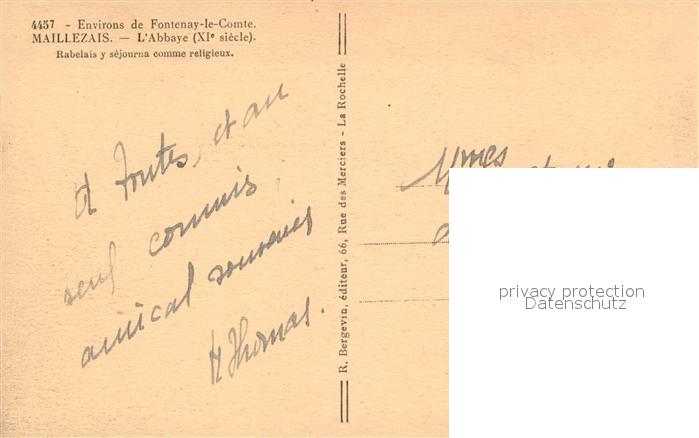 4457 - Environs de Fontenay-le-Comte.
MAILLEZAIS. — L'Abbaye (XIe siècle).
Rabelais y séjourna comme religieux.
A toutes, et au
seul commis,
amical souvenir
H Thomas.
R. Bergevin, éditeur, 66, Rue des Merciers - La Rochelle
Mmes
privacy protection
Datenschutz